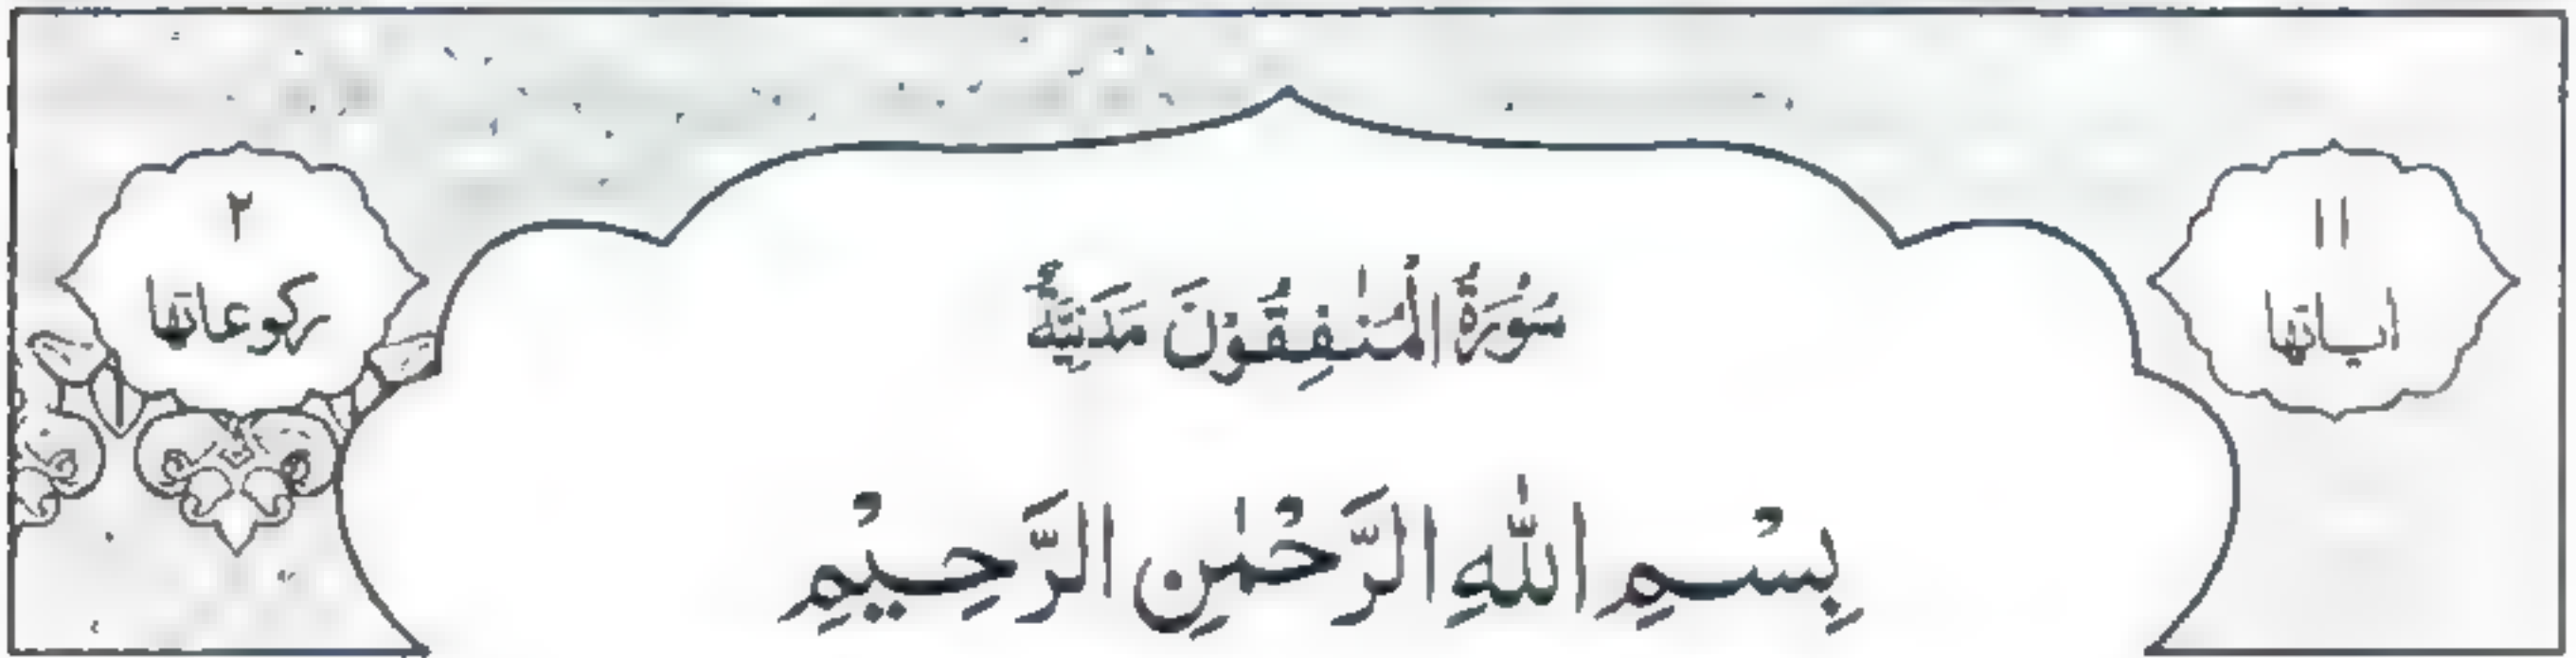 ۱۱
اٰیاتها
سُوۡرَةُ الۡمُنٰفِقُوۡنَ مَدَنِيَّةٌ
۲
رکوعاتها
بِسۡمِ اللّٰهِ الرَّحۡمٰنِ الرَّحِيۡمِ